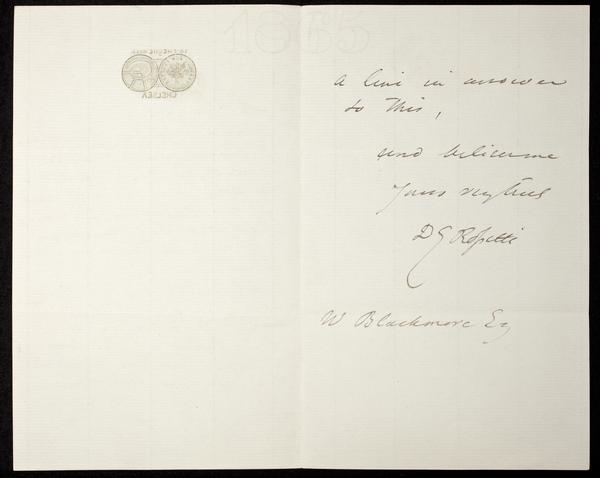 1865
CHELSEA
a line in answer
to this,
and believe me
Yours very truly
D G Rossetti
W Blackmore Esq